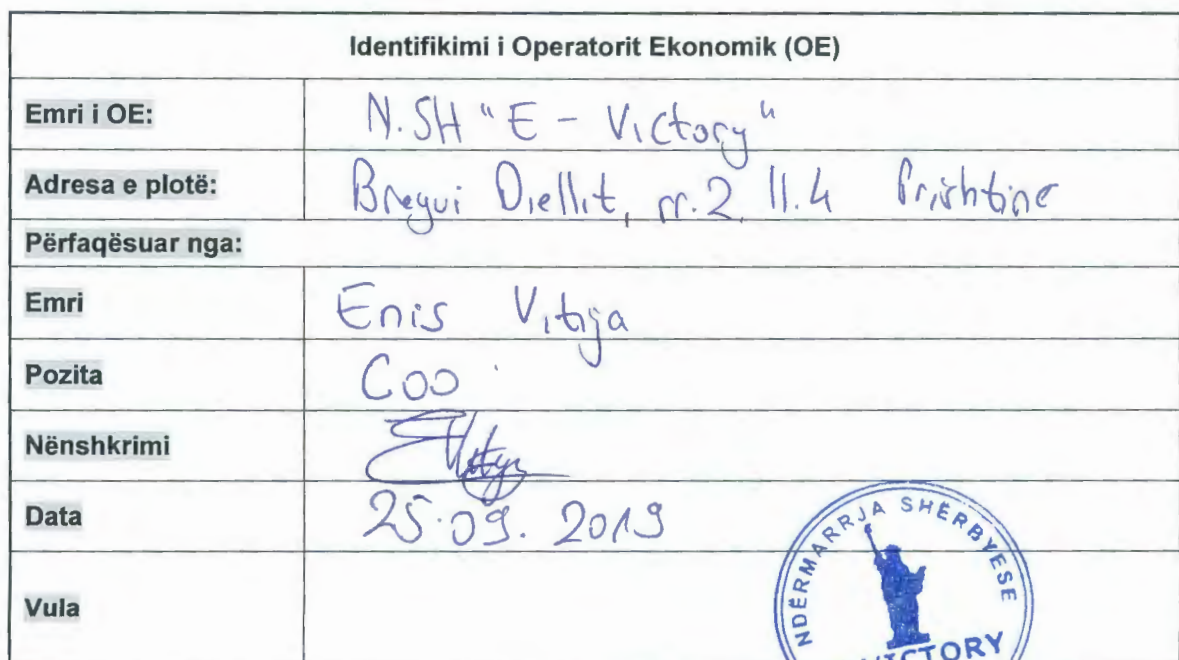 Identifikimi i Operatorit Ekonomik (OE)
Emri i OE: N.SH "E - Victory"
Adresa e plotë: Bregui Diellit, rr. 2, ll. 4 Prishtine
Përfaqësuar nga:
Emri Enis Vitija
Pozita COO
Nënshkrimi
Data 25.09.2019
Vula
NDËRMARRJA SHËRBYESE
VICTORY